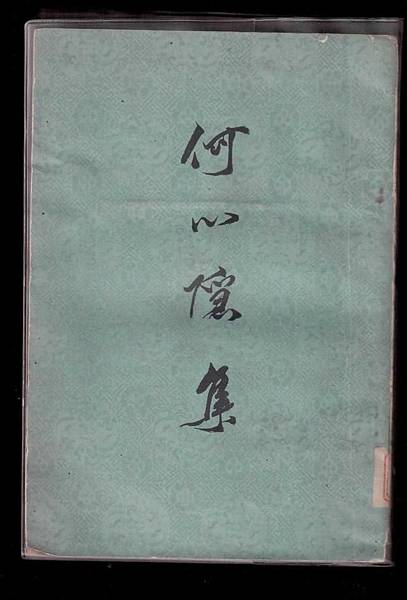 何心隱集